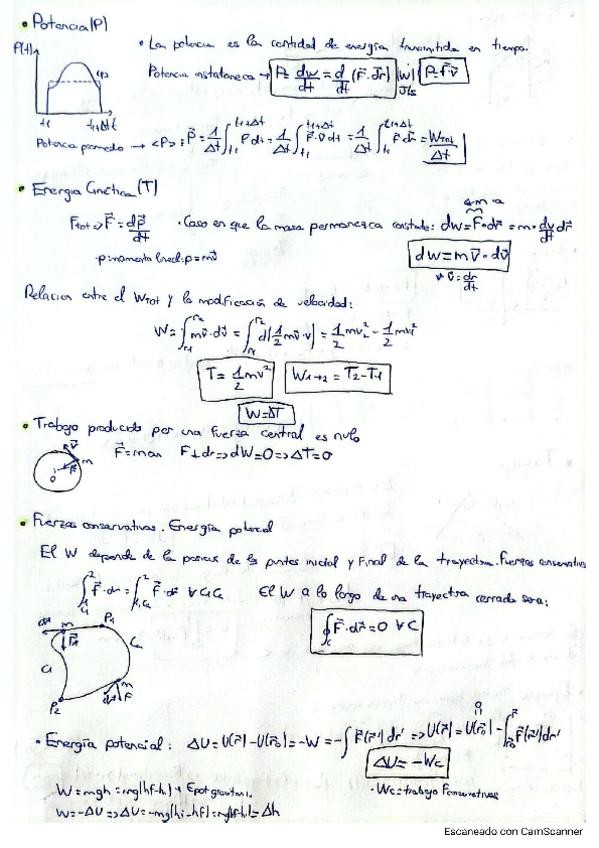 • Potencia (P)
P(t)
<P>
t1 t1+Δt t
• La potencia es la cantidad de energía transmitida en tiempo.
Potencia instantánea → P = dw/dt = d/dt (F⃗·dr⃗) |W| J/s P=F⃗·v⃗
Potencia promedio → <P> = P̄ = 1/Δt ∫_{t1}^{t1+Δt} P dt = 1/Δt ∫_{t1}^{t1+Δt} F⃗·v⃗ dt = 1/Δt ∫_{t1}^{t1+Δt} F⃗ dr⃗ = W_TOT/Δt
• Energía Cinética (T)
F_tot => F⃗ = dp⃗/dt · Caso en que la masa permanezca constante: dw = F⃗·dr⃗ = m·dv/dt dr⃗
m·a
·p: momento lineal: p = mv⃗
dw = mv⃗·dv⃗
* v⃗ = dr/dt
Relacion entre el W_TOT y la modificación de velocidad:
W = ∫_{r1}^{r2} mv⃗·dv⃗ = ∫_{r1}^{r2} d(1/2 mv⃗·v) = 1/2 mv₂² - 1/2 mv₁²
T = 1/2 mv² W1→2 = T2-T1
W=ΔT
• Trabajo producido por una fuerza central es nulo
v⃗ m F O
F⃗=m·an F⊥dr => dW=0 => ΔT=0
• Fuerzas conservativas. Energía potencial
El W depende de la posicion de los puntos inicial y final de la trayectoria. Fuerzas conservativas
∫_{1,C1}^{2} F⃗·dr = ∫_{1,C2}^{2} F⃗·dr⃗ ∀ C1 C2 El W a lo largo de una trayectoria cerrada sera:
∮_C F⃗·dr⃗ = 0 ∀C
dr m P1
F
C1 C2
m
P2 dr F
• Energía potencial: ΔU = U(r⃗) - U(r⃗0) = -W = -∫ F⃗(r⃗') dr' => U(r⃗) = U(r⃗0) - ∫_{r⃗0}^{r⃗} F⃗(r⃗') dr'
0
ΔU = -Wc
- W = mgh = mg(hf-hi) → Epot gravitatoria.
· Wc = trabajo F conservativas
W = -ΔU => ΔU = -mg(hi-hf) = mg(hf-hi) = Δh
Escaneado con CamScanner